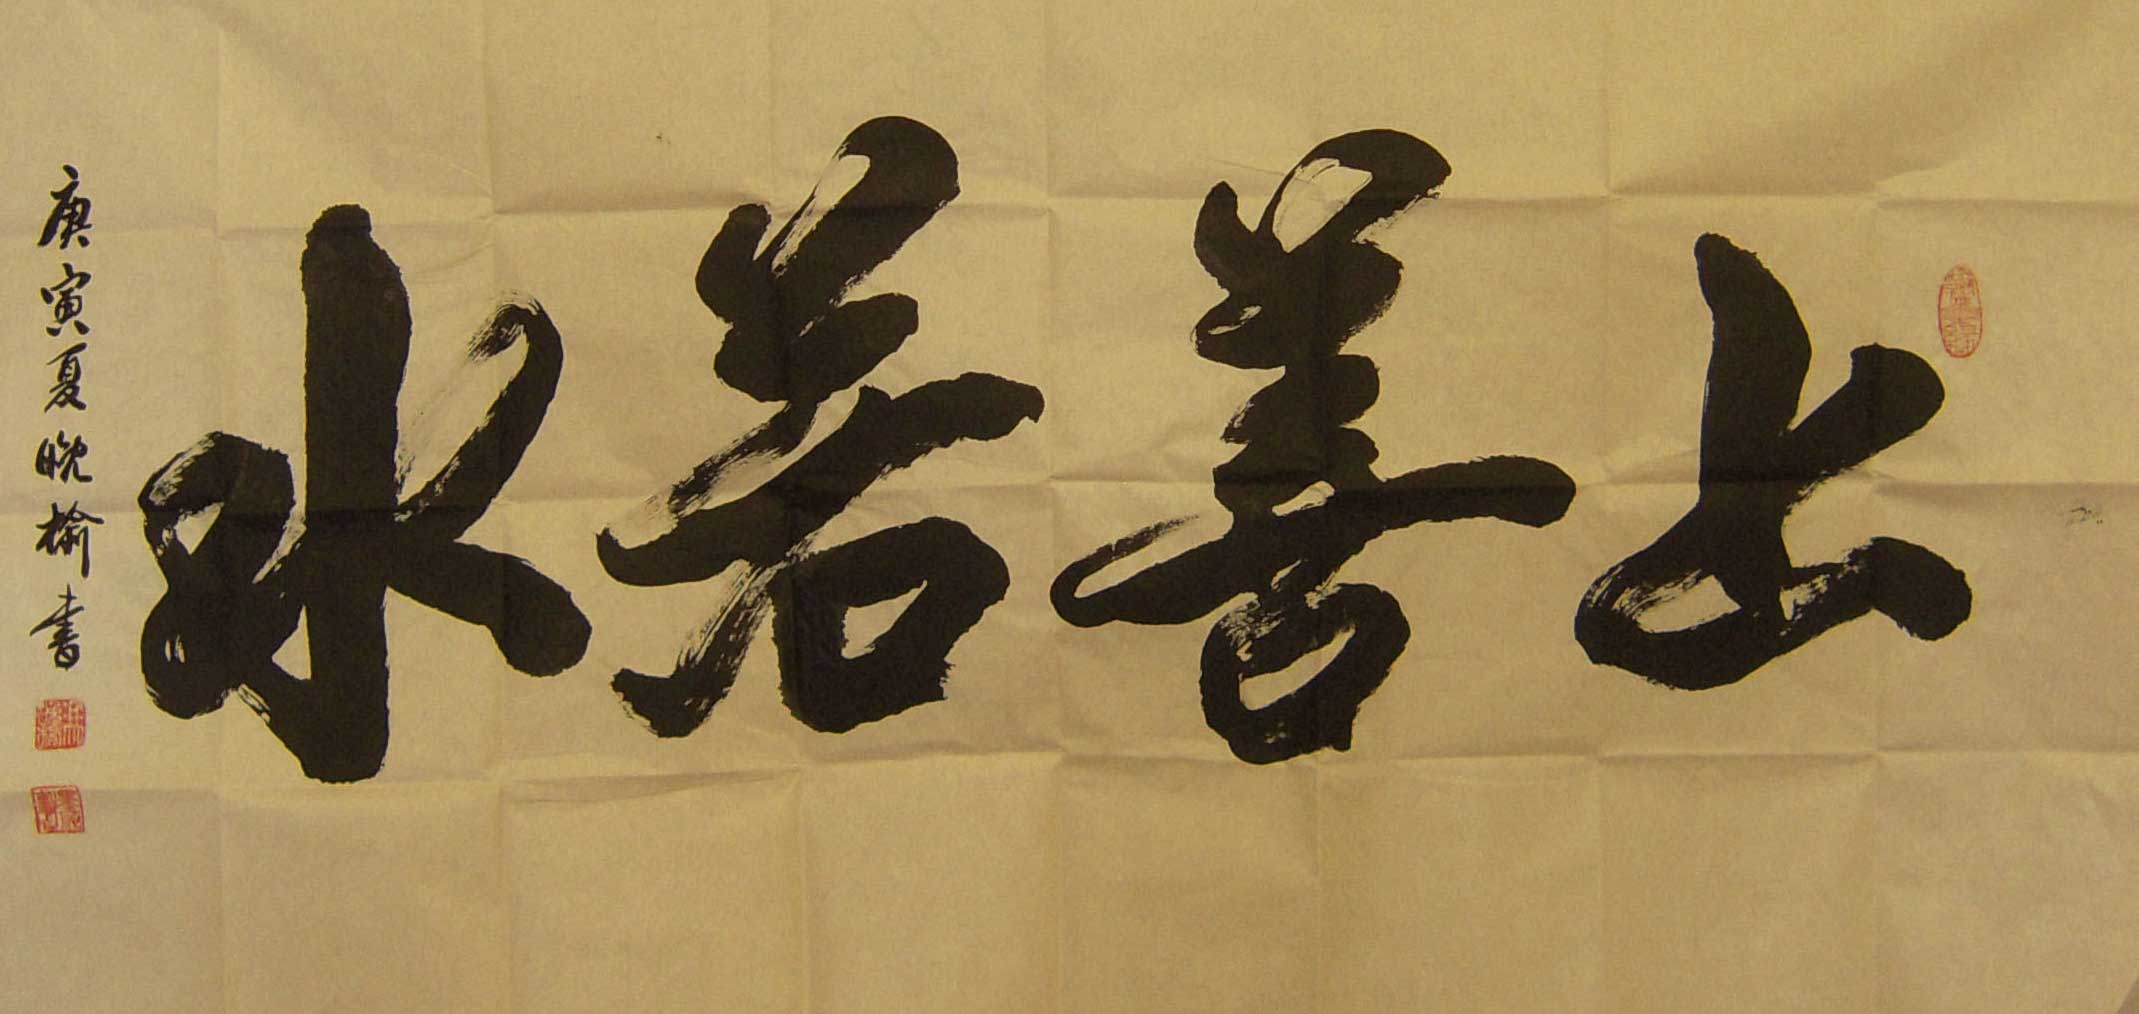 上善若水
庚寅夏晚榆书